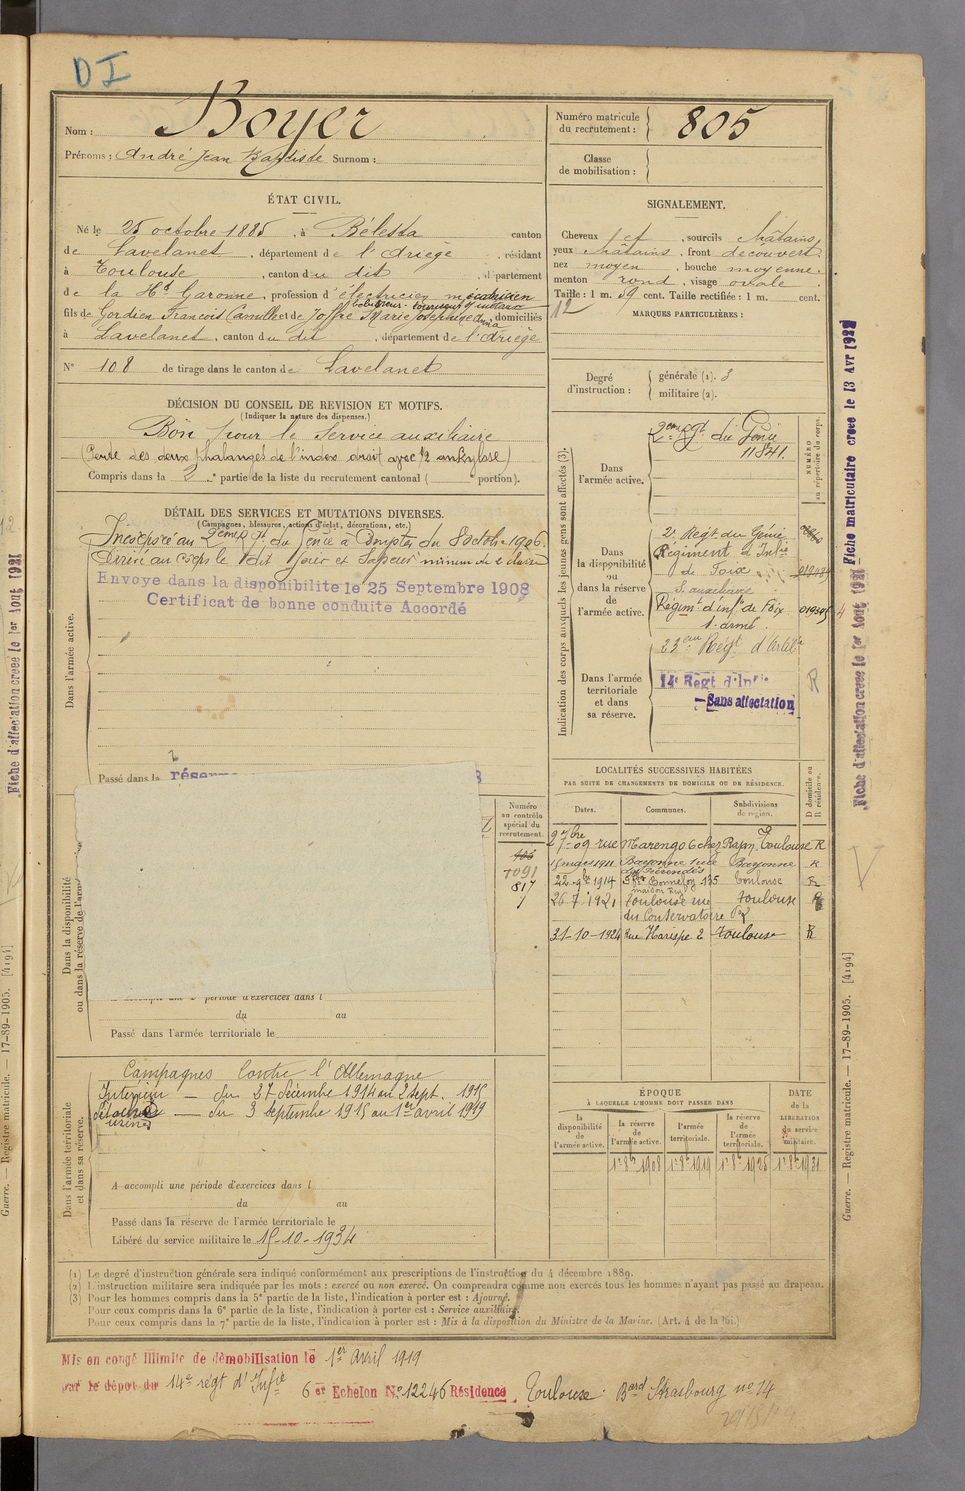 DI
Nom : Boyer
Prénoms : André Jean Baptiste Surnom :
Numéro matricule du recrutement : 805
Classe de mobilisation :
ÉTAT CIVIL.
Né le 25 octobre 1885, à Bélesta canton
de Lavelanet, département de l'Ariège, résidant
à Toulouse, canton du dit, département
de la Hte Garonne, profession d'électricien mécanicien
fils de Gordien François Camille et de Joffre Marie domiciliés
à Lavelanet, canton du dit, département de l'Ariège
N° 108 de tirage dans le canton de Lavelanet
SIGNALEMENT.
Cheveux , sourcils châtains
yeux châtains, front découvert
nez moyen, bouche moyenne.
menton rond, visage ovale.
Taille : 1 m. 59 cent. Taille rectifiée : 1 m. cent.
MARQUES PARTICULIÈRES :
Degré d'instruction :
générale (1). 3
militaire (2).
DÉCISION DU CONSEIL DE REVISION ET MOTIFS.
(Indiquer la nature des dispenses.)
Bon pour le Service auxiliaire
(Perte des deux phalanges de l'index droit avec 1/2 ankylose)
Compris dans la 2e partie de la liste du recrutement cantonal ( portion).
DÉTAIL DES SERVICES ET MUTATIONS DIVERSES.
(Campagnes, blessures, actions d'éclat, décorations, etc.)
Incorporé au 2eme Rgt du Génie à compter du 8 octobre 1906
Arrivé au corps le dit jour et Sapeur mineur de 2e classe
Envoye dans la disponibilite le 25 Septembre 1908
Certificat de bonne conduite Accordé
Dans l'armée active.
Passé dans la réserve
Indication des corps auxquels les jeunes gens sont affectés (3).
NUMÉRO au répertoire du corps.
Dans l'armée active.
2eme Rgt du Génie
11841
Dans la disponibilité ou dans la réserve de l'armée active.
2e Régt du Génie
Régiment d'Infie
de Foix
S. auxiliaire
Régimt d'infie de Foix
S. armé
Dans l'armée territoriale et dans sa réserve.
23eme Régt d'Artillie
14e Regt d'Infie
Sans affectation
R
Dans la disponibilité ou dans la réserve de l'armée
Numéro au contrôle spécial du recrutement.
1091
817
période d'exercices dans l
du au
Passé dans l'armée territoriale le
LOCALITÉS SUCCESSIVES HABITÉES
PAR SUITE DE CHANGEMENTS DE DOMICILE OU DE RÉSIDENCE.
Dates. Communes. Subdivisions de région. D domicile ou R résidence.
09 rue Marengo 6 chez Toulouse R
15 mars 1911 Bayonne Bayonne R
1914 Bonnefoy 135 Toulouse R
26 7 1921 Toulouse rue du Conservatoire Toulouse R
31-10-1924 Rue Harispe 2 Toulouse R
Dans l'armée territoriale et dans sa réserve.
Campagnes Contre l'Allemagne
Intérieur — du 27 décembre 1914 au 2 sept. 1915
Détaché usine — du 3 septembre 1915 au 1er avril 1919
A accompli une période d'exercices dans l
du au
Passé dans la réserve de l'armée territoriale le
Libéré du service militaire le 15-10-1934
ÉPOQUE
À LAQUELLE L'HOMME DOIT PASSER DANS
la disponibilité de l'armée active.
la réserve de l'armée active.
l'armée territoriale.
la réserve de l'armée territoriale.
DATE de la LIBÉRATION du service militaire.
1er 8bre 1908 1er 8bre 1919 1er 8bre 1925 1er 8bre 1931
(1) Le degré d'instruction générale sera indiqué conformément aux prescriptions de l'instruction du 4 décembre 1889.
(2) L'instruction militaire sera indiquée par les mots : exercé ou non exercé. On comprendra comme non exercés tous les hommes n'ayant pas passé au drapeau.
(3) Pour les hommes compris dans la 5e partie de la liste, l'indication à porter est : Ajourné.
Pour ceux compris dans la 6e partie de la liste, l'indication à porter est : Service auxiliaire.
Pour ceux compris dans la 7e partie de la liste, l'indication à porter est : Mis à la disposition du Ministre de la Marine. (Art. 4 de la loi.)
Mis en congé illimité de démobilisation le 1er Avril 1919
par le dépôt du 14e régt d'Infie 6e Echelon N° 12246 Résidence Toulouse Bard Strasbourg no 74
Guerre. — Registre matricule. — 17-89-1905. [4194]
Fiche d'affectation créée le 1er Août 1921
Fiche matriculaire créée le 13 Avr
Guerre. — Registre matricule. — 17-89-1905. [4194]
Fiche d'affectation créée le 1er Août 1921